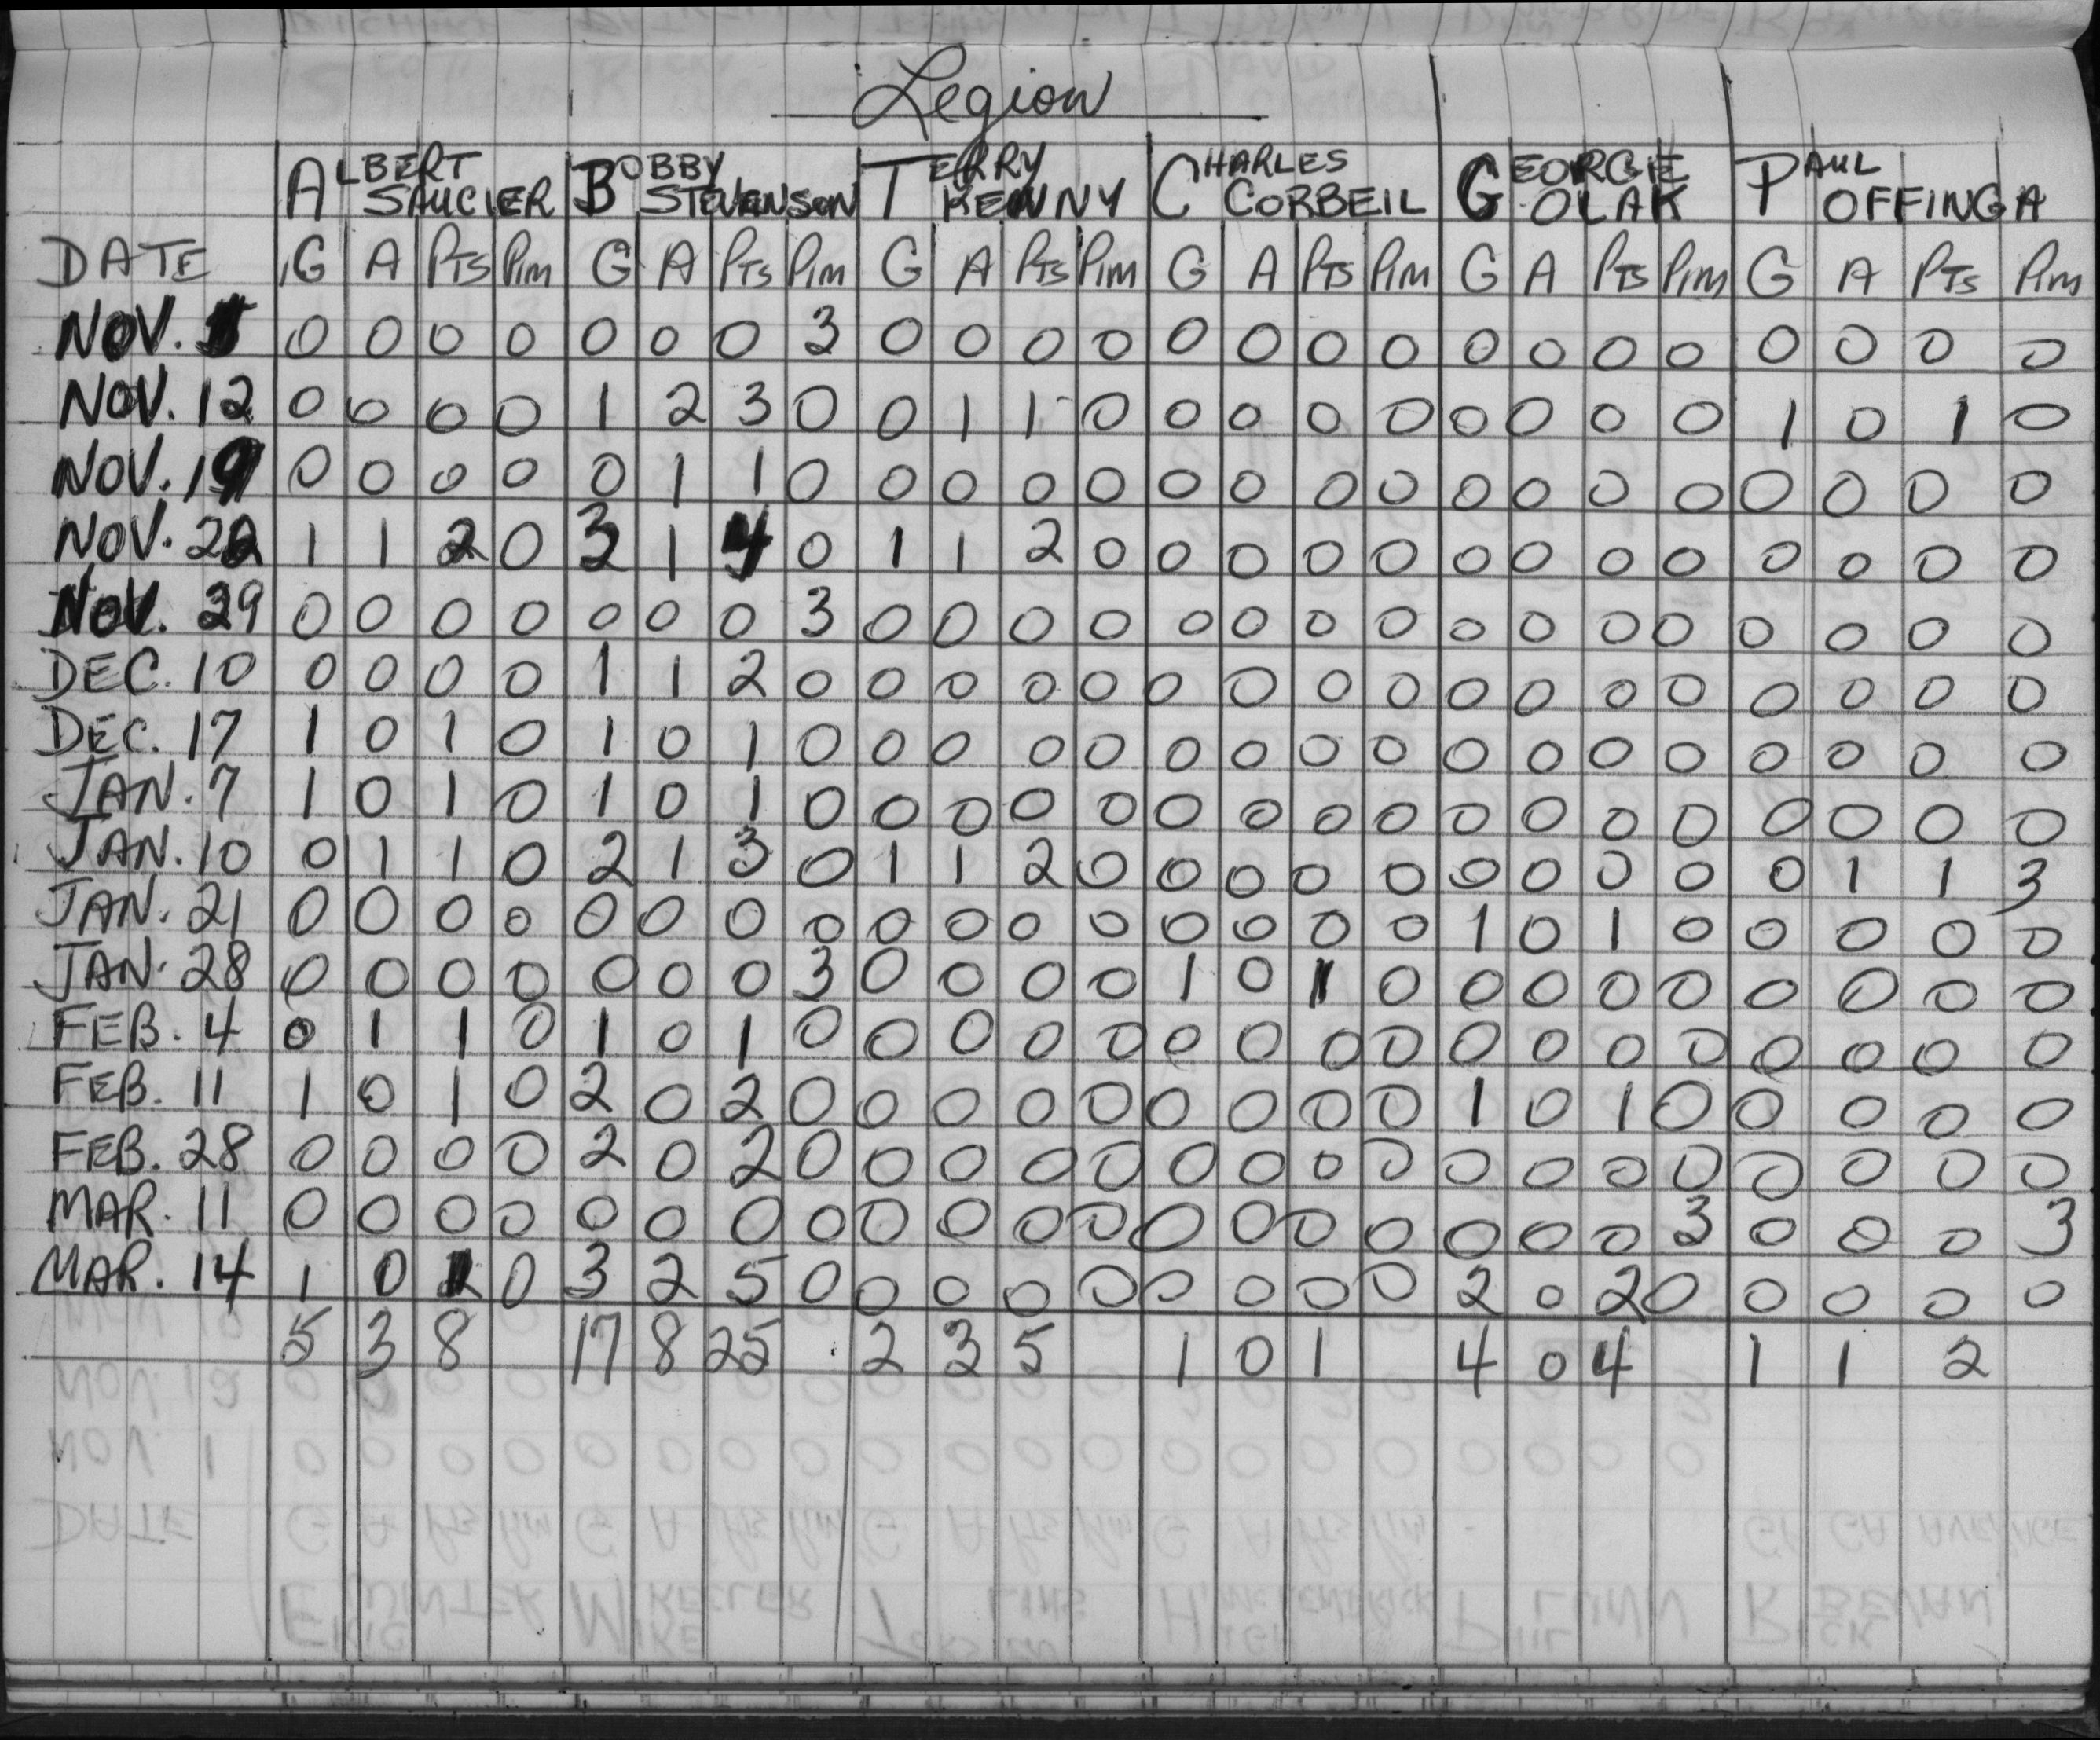 Legion
ALBERT SAUCIER BOBBY STEVENSON TERRY KENNY CHARLES CORBEIL GEORGIE OLAK PAUL OFFINGA
DATE G A PTS PIM G A PTS PIM G A PTS PIM G A PTS PIM G A PTS PIM G A PTS PIM
NOV. 0 0 0 0 0 0 0 3 0 0 0 0 0 0 0 0 0 0 0 0 0 0 0 0
NOV. 12 0 0 0 0 1 2 3 0 0 1 1 0 0 0 0 0 0 0 0 0 1 0 1 0
NOV. 19 0 0 0 0 0 1 1 0 0 0 0 0 0 0 0 0 0 0 0 0 0 0 0 0
NOV. 1 1 2 0 3 1 4 0 1 1 2 0 0 0 0 0 0 0 0 0 0 0 0 0
NOV. 29 0 0 0 0 0 0 0 3 0 0 0 0 0 0 0 0 0 0 0 0 0 0 0 0
DEC. 10 0 0 0 0 1 1 2 0 0 0 0 0 0 0 0 0 0 0 0 0 0 0 0 0
DEC. 17 1 0 1 0 1 0 1 0 0 0 0 0 0 0 0 0 0 0 0 0 0 0 0 0
JAN. 7 1 0 1 0 1 0 1 0 0 0 0 0 0 0 0 0 0 0 0 0 0 0 0 0
JAN. 10 0 1 1 0 2 1 3 0 1 1 2 0 0 0 0 0 0 0 0 0 0 1 1 3
JAN. 21 0 0 0 0 0 0 0 0 0 0 0 0 0 0 0 0 1 0 1 0 0 0 0 0
JAN. 28 0 0 0 0 0 0 0 3 0 0 0 0 1 0 1 0 0 0 0 0 0 0 0 0
FEB. 4 0 1 1 0 1 0 1 0 0 0 0 0 0 0 0 0 0 0 0 0 0 0 0 0
FEB. 11 1 0 1 0 2 0 2 0 0 0 0 0 0 0 0 0 1 0 1 0 0 0 0 0
FEB. 28 0 0 0 0 2 0 2 0 0 0 0 0 0 0 0 0 0 0 0 0 0 0 0 0
MAR. 11 0 0 0 0 0 0 0 0 0 0 0 0 0 0 0 0 0 0 0 3 0 0 0 3
MAR. 14 1 0 1 0 3 2 5 0 0 0 0 0 0 0 0 0 2 0 2 0 0 0 0 0
5 3 8 17 8 25 2 3 5 1 0 1 4 0 4 1 1 2